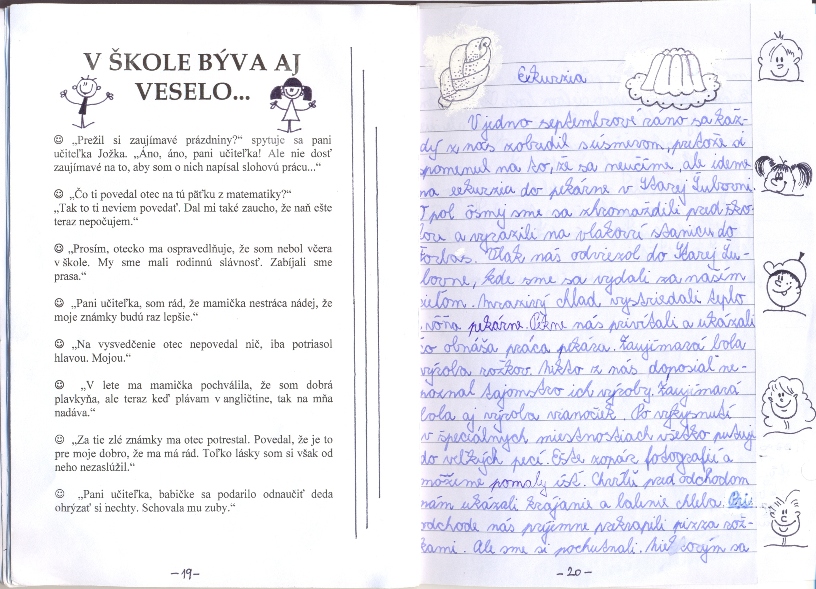 V ŠKOLE BÝVA AJ
VESELO...
☺ „Prežil si zaujímavé prázdniny?“ spytuje sa pani
učiteľka Jožka. „Áno, áno, pani učiteľka! Ale nie dosť
zaujímavé na to, aby som o nich napísal slohovú prácu...“
☺ „Čo ti povedal otec na tú päťku z matematiky?“
„Tak to ti neviem povedať. Dal mi také zaucho, že naň ešte
teraz nepočujem.“
☺ „Prosím, otecko ma ospravedlňuje, že som nebol včera
v škole. My sme mali rodinnú slávnosť. Zabíjali sme
prasa.“
☺ „Pani učiteľka, som rád, že mamička nestráca nádej, že
moje známky budú raz lepšie.“
☺ „Na vysvedčenie otec nepovedal nič, iba potriasol
hlavou. Mojou.“
☺ „V lete ma mamička pochválila, že som dobrá
plavkyňa, ale teraz keď plávam v angličtine, tak na mňa
nadáva.“
☺ „Za tie zlé známky ma otec potrestal. Povedal, že je to
pre moje dobro, že ma má rád. Toľko lásky som si však od
neho nezaslúžil.“
☺ „Pani učiteľka, babičke sa podarilo odnaučiť deda
ohrýzať si nechty. Schovala mu zuby.“
– 19 –
Exkurzia
V jedno septembrové ráno sa kaž-
dý z nás zobudil s úsmevom, pretože si
spomenul na to, že sa neučíme, ale ideme
na exkurziu do pekárne v Starej Ľubovni.
O pol ôsmej sme sa zhromaždili pred ško-
lou a vyrazili na vlakovú stanicu do
Forbas. Vlak nás odviezol do Starej Ľu-
bovne, kde sme sa vydali za naším
cieľom. Mrazivý chlad vystriedali teplo
vôňa pekárne. Pekne nás privítali a ukázali
čo obnáša práca pekára. Zaujímavá bola
výroba rožkov. Nikto z nás doposiaľ ne-
poznal tajomstvo ich výroby. Zaujímavá
bola aj výroba vianočiek. Po vykysnutí
v špeciálnych miestnostiach všetko putuje
do veľkých pecí. Ešte zopár fotografií a
môžeme pomaly ísť. Chvíľu pred odchodom
nám ukázali krájanie a balenie chleba. Pri
odchode nás príjemne prekvapili pizza rož-
kami. Ale sme si pochutnali. sa
– 20 –